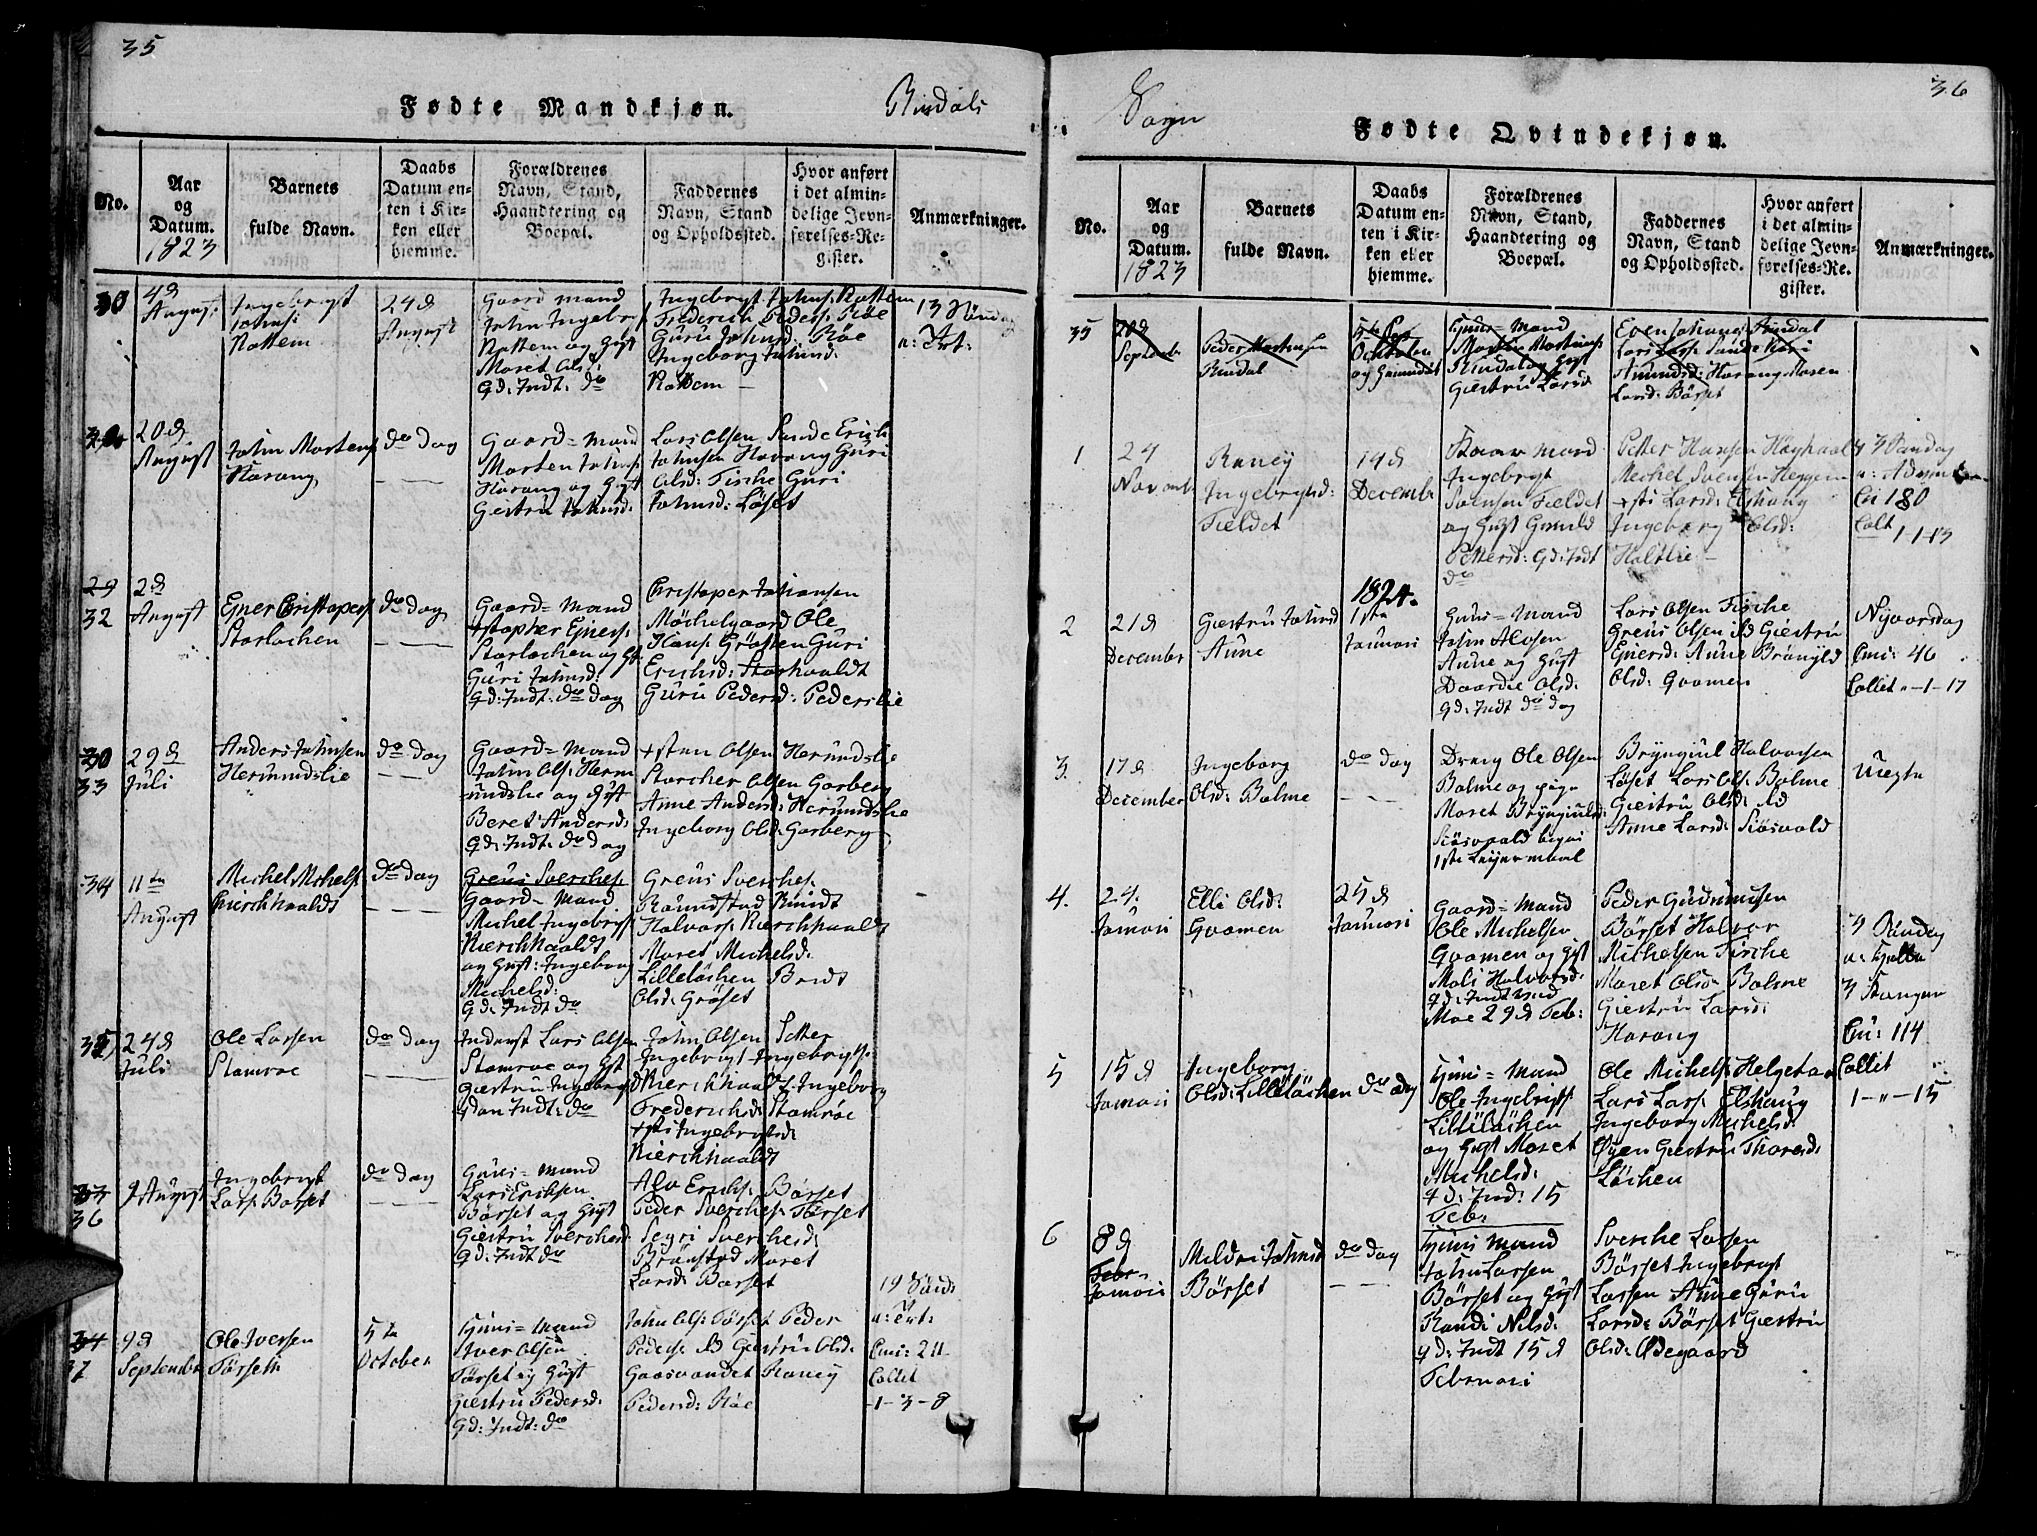 35
Fødte Mandkjøn.
Rindals
No.
Aar
og
Datum.
1823
Barnets
fulde Navn.
Daabs
Datum en-
ten i Kir-
ken eller
hjemme.
Forældrenes
Navn, Stand,
Haandtering og
Boepæl.
Faddernes
Navn, Stand
og Opholdssted.
Hvor anført
i det almin-
delige Jevn-
førelses-Re-
gister.
Anmærkninger.
30
4d
August
Ingebrygt
Johns:
Rottem
24d
August
Gaard mand
John Ingebr
Rottem og Gift
Maret Ols:
Gd: Indt: do
Ingebrygt Johns: Rottem
Frederich Peders: Røe
Guru Johnsd: Røe
Ingeborg Johnsd:
Rottem —
13 Søndag
a: Trt:
20d
August
John Mortens
Harang
do dag
Gaard = Mand
Morten Johns:
Harang og Gift
Giestru Johnsd:
Lars Olsen Sande Erich
Johnsen Harang Guri
Olsd: Fiske Guri
Johnsd: Løset
29
32
2d
August
Ejner Christopers:
Storløchen
do dag
Gaard = Mand
+stopher Ejners:
Storløchen og Gt
Guri Johnsd:
Gd: Indt: do dag
Christoper Johansen
Møchelgaard Ole
Hans: Grøtten Guri
Erichsd: Storhaaldt
Guru Pedersd: Pederslie
30
33
29d
Juli
Anders Johnsen
Hermundslie
do dag
Gaard = Mand
John Ols: Herm
undslie og Gift
Beret Andersd:
Gd: Indt: do dag
+sten Olsen Hermundslie
Storcher Olsen Garberg
Anne Andersd: Hermundslie
Ingeborg Olsd: Garberg
34
11te
August
Michel Michels:
Kierchhaaldt
do dag
Greus Sverches:
Gaard = Mand
Michel Ingebrygts
Kierchhaaldt
og Gift: Ingeborg
Michelsd:
Gd: Indt do
Greus Sverches:
Raundstad Knudt
Halvors: Kierchhaaldt
Maret Michelsd:
Lilleløchen Brit
Olsd: Grøset
35
24d
Juli
Ole Larsen
Stomroe
do dag
Inderst Lars Olsen
Stomroe og Gift
Giestru Ingebrygtsd
Gdan Indt: do
John Olsen Sæter
Ingebrygt Ingebrygts:
Kierchhaaldt Ingeborg
Frederichsd: Stomrøe
+sti Ingebrygtsd:
Kierchhaaldt
33
36
9 August
Ingebrygt
Lars: Børset
do dag
Guus = Mand
Lars Erichsen
Børset og Gift
Giestru Sverchesd:
Gd: Indt do
Alv Erichs: Børset
Peder Sverches: Tørset
Segri Sverchesd:
Brønstad Maret
Larsd: Børset
34
37
9d
September
Ole Iversen
Tørset
5te
October
Huus = Mand
Iver Olsen
Tørset og Gift
Giestru Pedersd:
Gd: Indt: do
John Ols: Tørset Peder
Peders: Aa Giestru Olsd:
Gaasvandet Raney
Pedersd: Røe
19 Sønd:
a: Trt:
Cmi: 211
Collet
-1-3-8
Sogn
36
Fødte Qvindekjøn.
No.
Aar
og
Datum.
1823
Barnets
fulde Navn.
Daabs
Datum en-
ten i Kir-
ken eller
hjemme.
Forældrenes
Navn, Stand,
Haandtering og
Boepæl.
Faddernes
Navn, Stand
og Opholdssted.
Hvor anført
i det almin-
delige Jevn-
førelses-Re-
gister.
Anmærkninger.
35
20d
Septemb
Peder Mortensen
Rindal
5te
October
Huus = Mand
Morten Mortens:
Rindal og Gift
Giestru Larsd
Even Johans: Rindal
Lars Lars: Sande Kari
Amundsd: Harang Maren
Larsd: Børset
1
24
Novemb
Raney
Ingebrygtsd:
Fældet
14d
Decemb
Ingebrygt
Svensen Fældet
og Gift Gunild
Pettersd: Gd: Indt
do
Petter Hansen
Michel Svensen Heggem
+sti Larsd: Elshaug
Ingeborg Olsd:
Holtlie —
3 Søndag
a: Advent
Cm 180
Colt
1-1-13
1824.
2
21d
December
Giestru Johnsd
Aune
1ste
Januari
Guus = Mand
John Alvsen
Aune og Gift
Daardie Olsd:
Gd: Indt do dag
Lars Olsen Fiske
Greus Olsen Aa Giestru
Ejnersd: Aune Brønyld
Olsd: Gaamen
Nyaarsdag
Cmi: 46
Collet "-1-17
3.
17d
December
Ingeborg
Olsd: Bolme
do dag
Dreng Ole Olsen
Bolme og pige
Maret Bryngiulds
Siøsvold begas
1ste Leiermaal
Bryngiul Halvorsen
Løset Lars Ols: Bolme
Giestru Olsd: Aa
Anne Larsd: Siøsvold
Uegte
4.
24.
Januari
Elli Olsd:
Gaamen
25d
Januari
Gaard = Mand
Ole Michelsen
Gaamen og Gift
Mali Halvorsd:
gd: Indt ved
Moe 29d Feb:
Peder Gudmunsen
Børset Halvor
Michelsen Fiske
Maret Olsd: Bolme
Giestru Larsd:
Harang
3 Søndag
a: Hellig
3 Konger
Cm: 114
Collet
1-"-15
5
15d
Januari
Ingeborg
Olsd: Lilleløchen
do dag
Huus = Mand
Ole Ingebrigts:
Lilleløchen
og Gift Maret
Michelsd:
gd: Ind: 15
Feb:
Ole Michels: Helgetun
Lars Lars: Elshaug
Ingeborg Michelsd:
Øyen Giestru Thoresd:
Løchen
6
8d
Febr.
Januari
Mildri Johnsd
Børset
do dag
Huus Mand
John Larsen
Børset og Gift
Randi Nilsd:
gd: Indt 15d
Februari
Sverche Larsen
Børset Ingebrygt
Larsen Aune Guru
Larsd: Børset Giestru
Olsd: Ødegaard